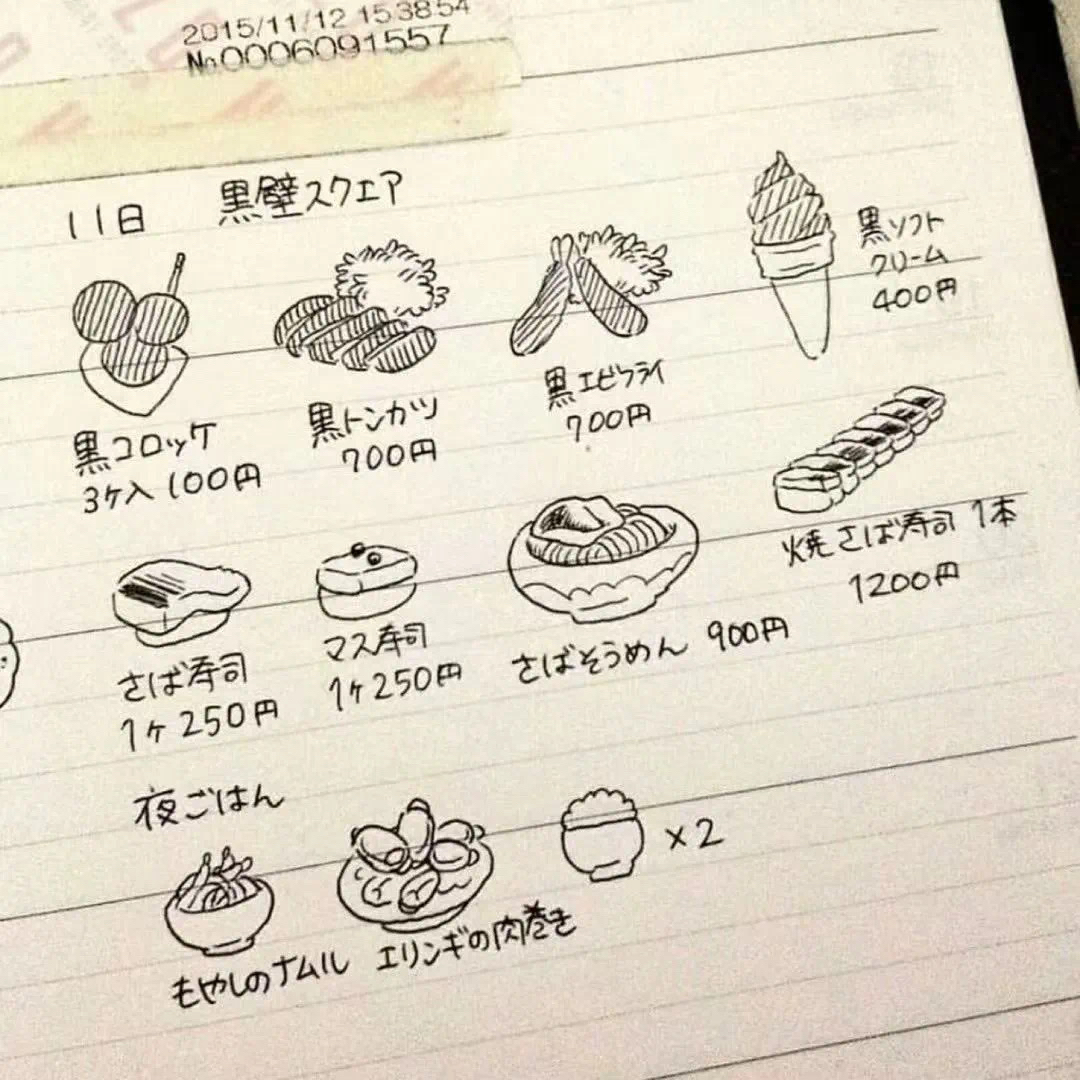 2015/11/12 15:38:54
No.0006091557
11日 黒壁スクエア
黒ソフト
クリーム
400円
黒コロッケ
3ケ入 100円
黒トンカツ
700円
黒エビフライ
700円
焼さば寿司 1本
1200円
さば寿司
1ケ 250円
マス寿司
1ケ 250円
さばそうめん 900円
夜ごはん
×2
もやしのナムル エリンギの肉巻き